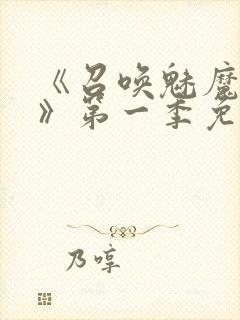 《召唤魅魔
》第一季免
乃啍